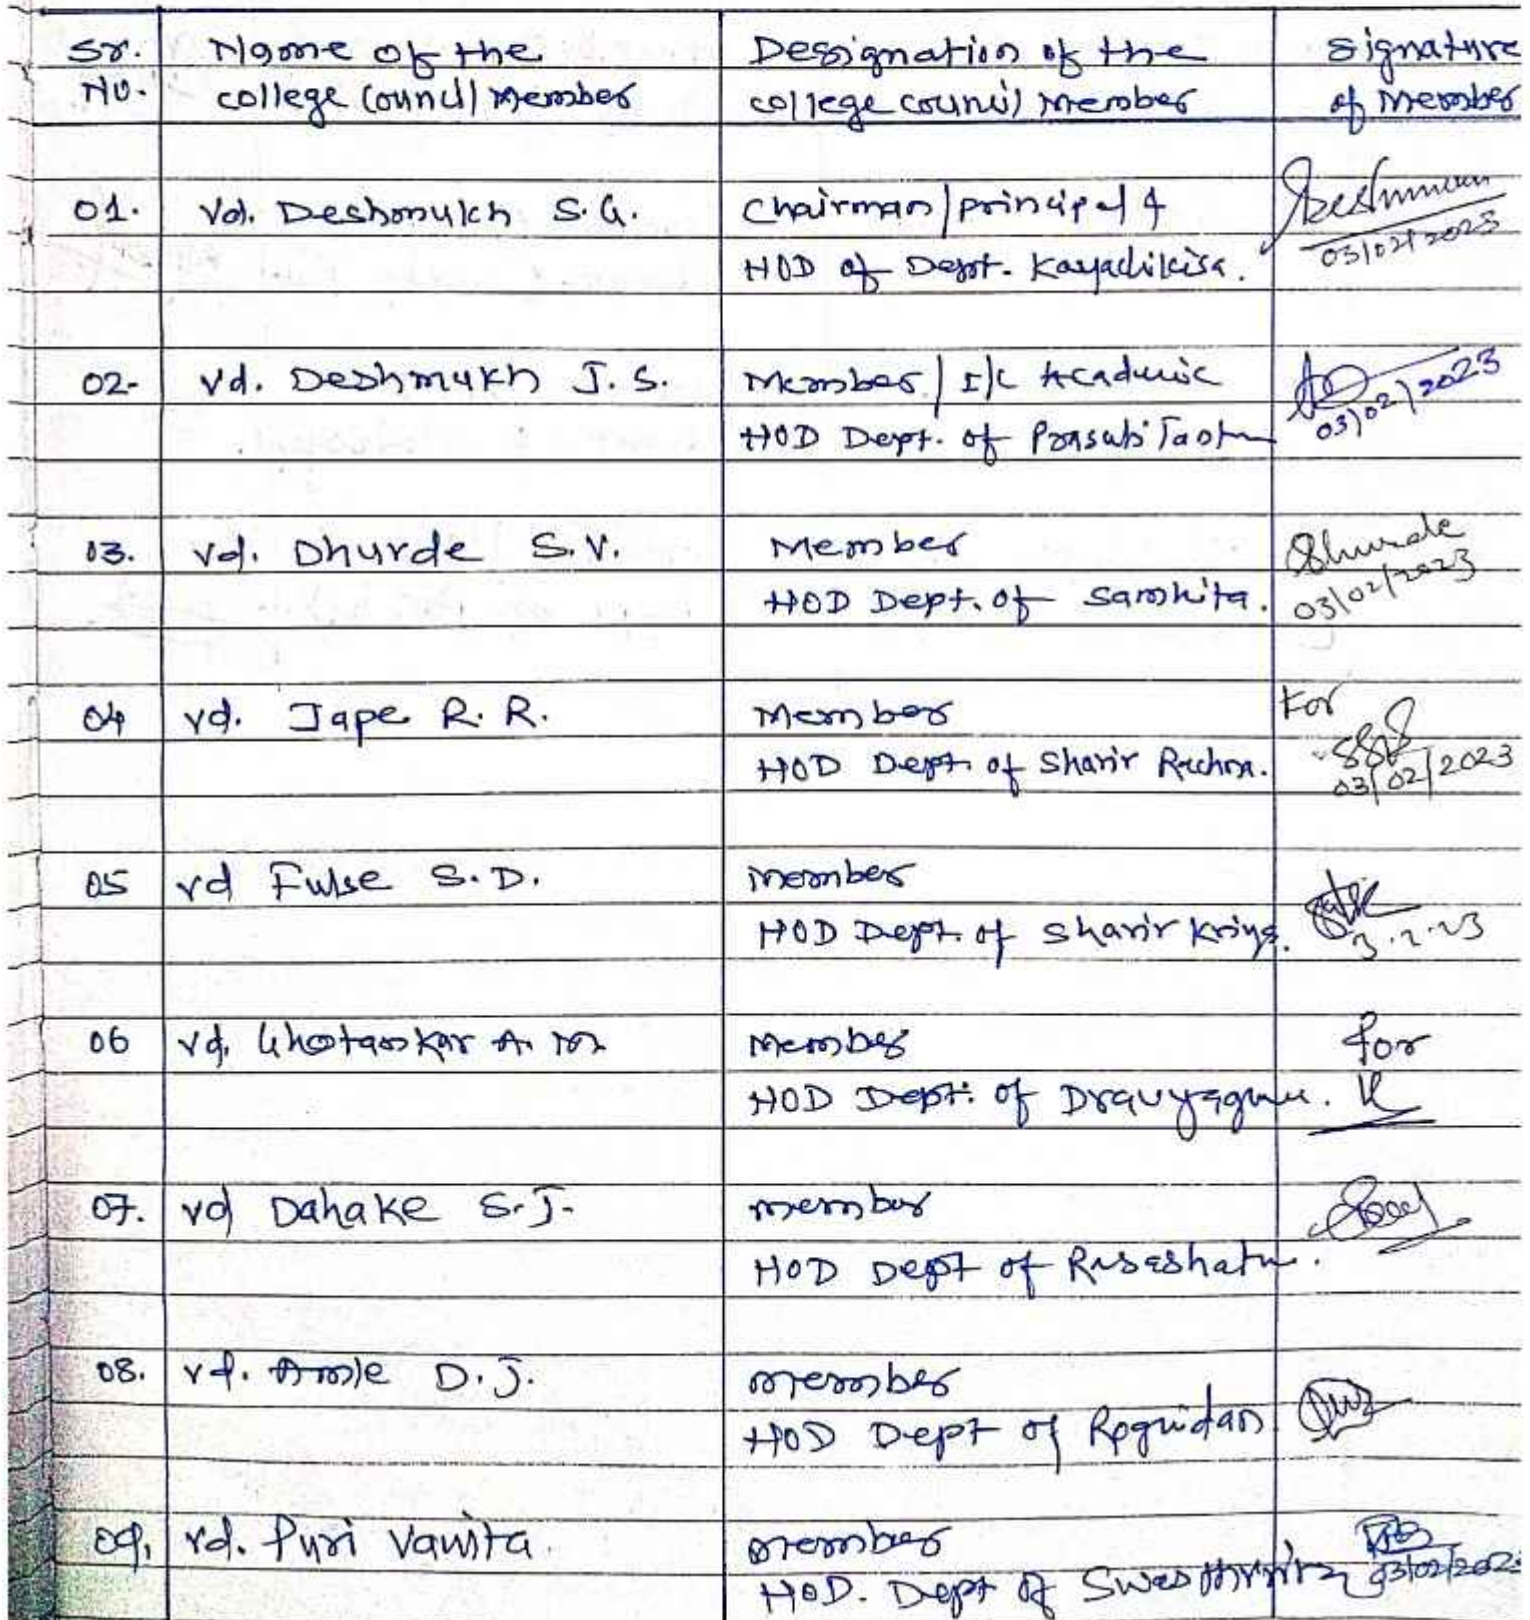 Sr. Name of the Designation of the Signature
No. college Council Member college Council Member of Member
01. Vd. Deshmukh S.G. Chairman/principal &
HOD of Dept. Kayachikisa. 03/02/2023
02- Vd. Deshmukh J.S. Member / I/C Academic
HOD Dept. of Prasuti 03/02/2023
03. Vd. Dhurde S.V. Member
HOD Dept. of Samhita. 03/02/2023
04 Vd. Jape R.R. Member For
HOD Dept. of Sharir Rachna. 03/02/2023
05 Vd Fulse S.D. Member
HOD Dept. of Sharir Kriya. 3.2.23
06 Vd. Ghotankar A. M Member for
HOD Dept. of Dravyaguna.
07. Vd Dahake S.J. Member
HOD Dept of
08. Vd. Amle D.J. Member
HOD Dept of Rognidan
09. Vd. Puri Vanita. Member
HOD. Dept of 03/02/202